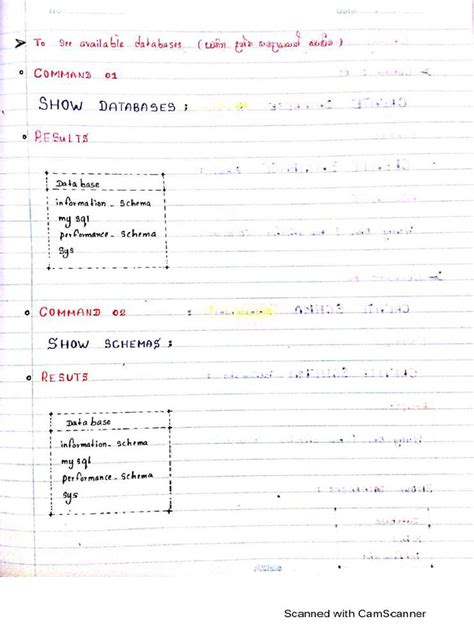 ➤ To see available databases (
• COMMAND 01
SHOW DATABASES ;
• RESULTS
Data base
information - schema
my sql
performance - schema
sys
• COMMAND 02
SHOW SCHEMAS ;
• RESUTS
Data base
information - schema
my sql
performance - schema
sys
Scanned with CamScanner